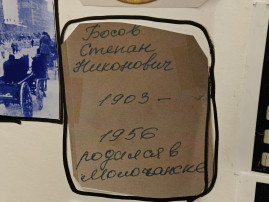 Босов
Степан
Никонович
1903 –
1956
родился в
Молочанске